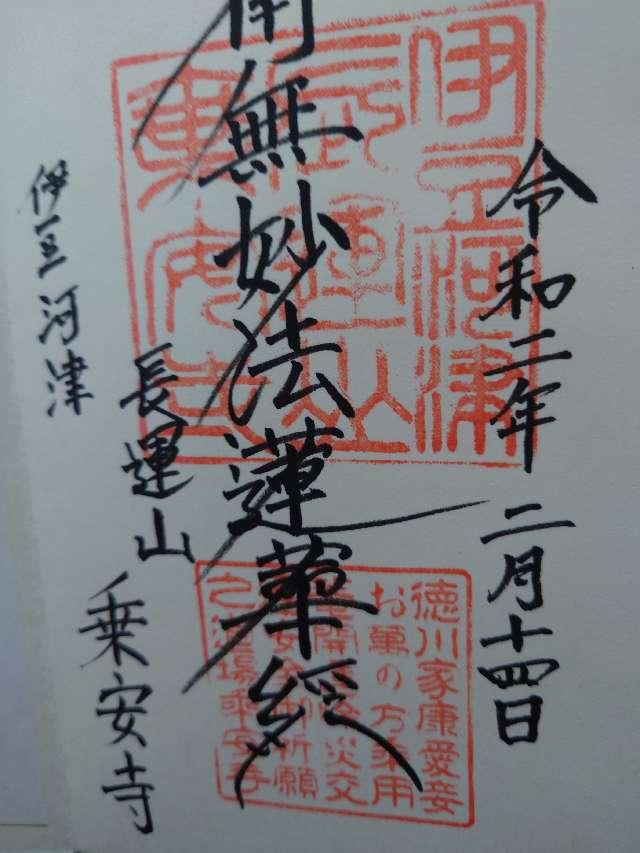 令和二年 二月十四日
南無妙法蓮華経
長運山 乗安寺
伊豆 河津
伊豆河津
長運山
乗安寺
徳川家康愛妾
お萬の方乗用